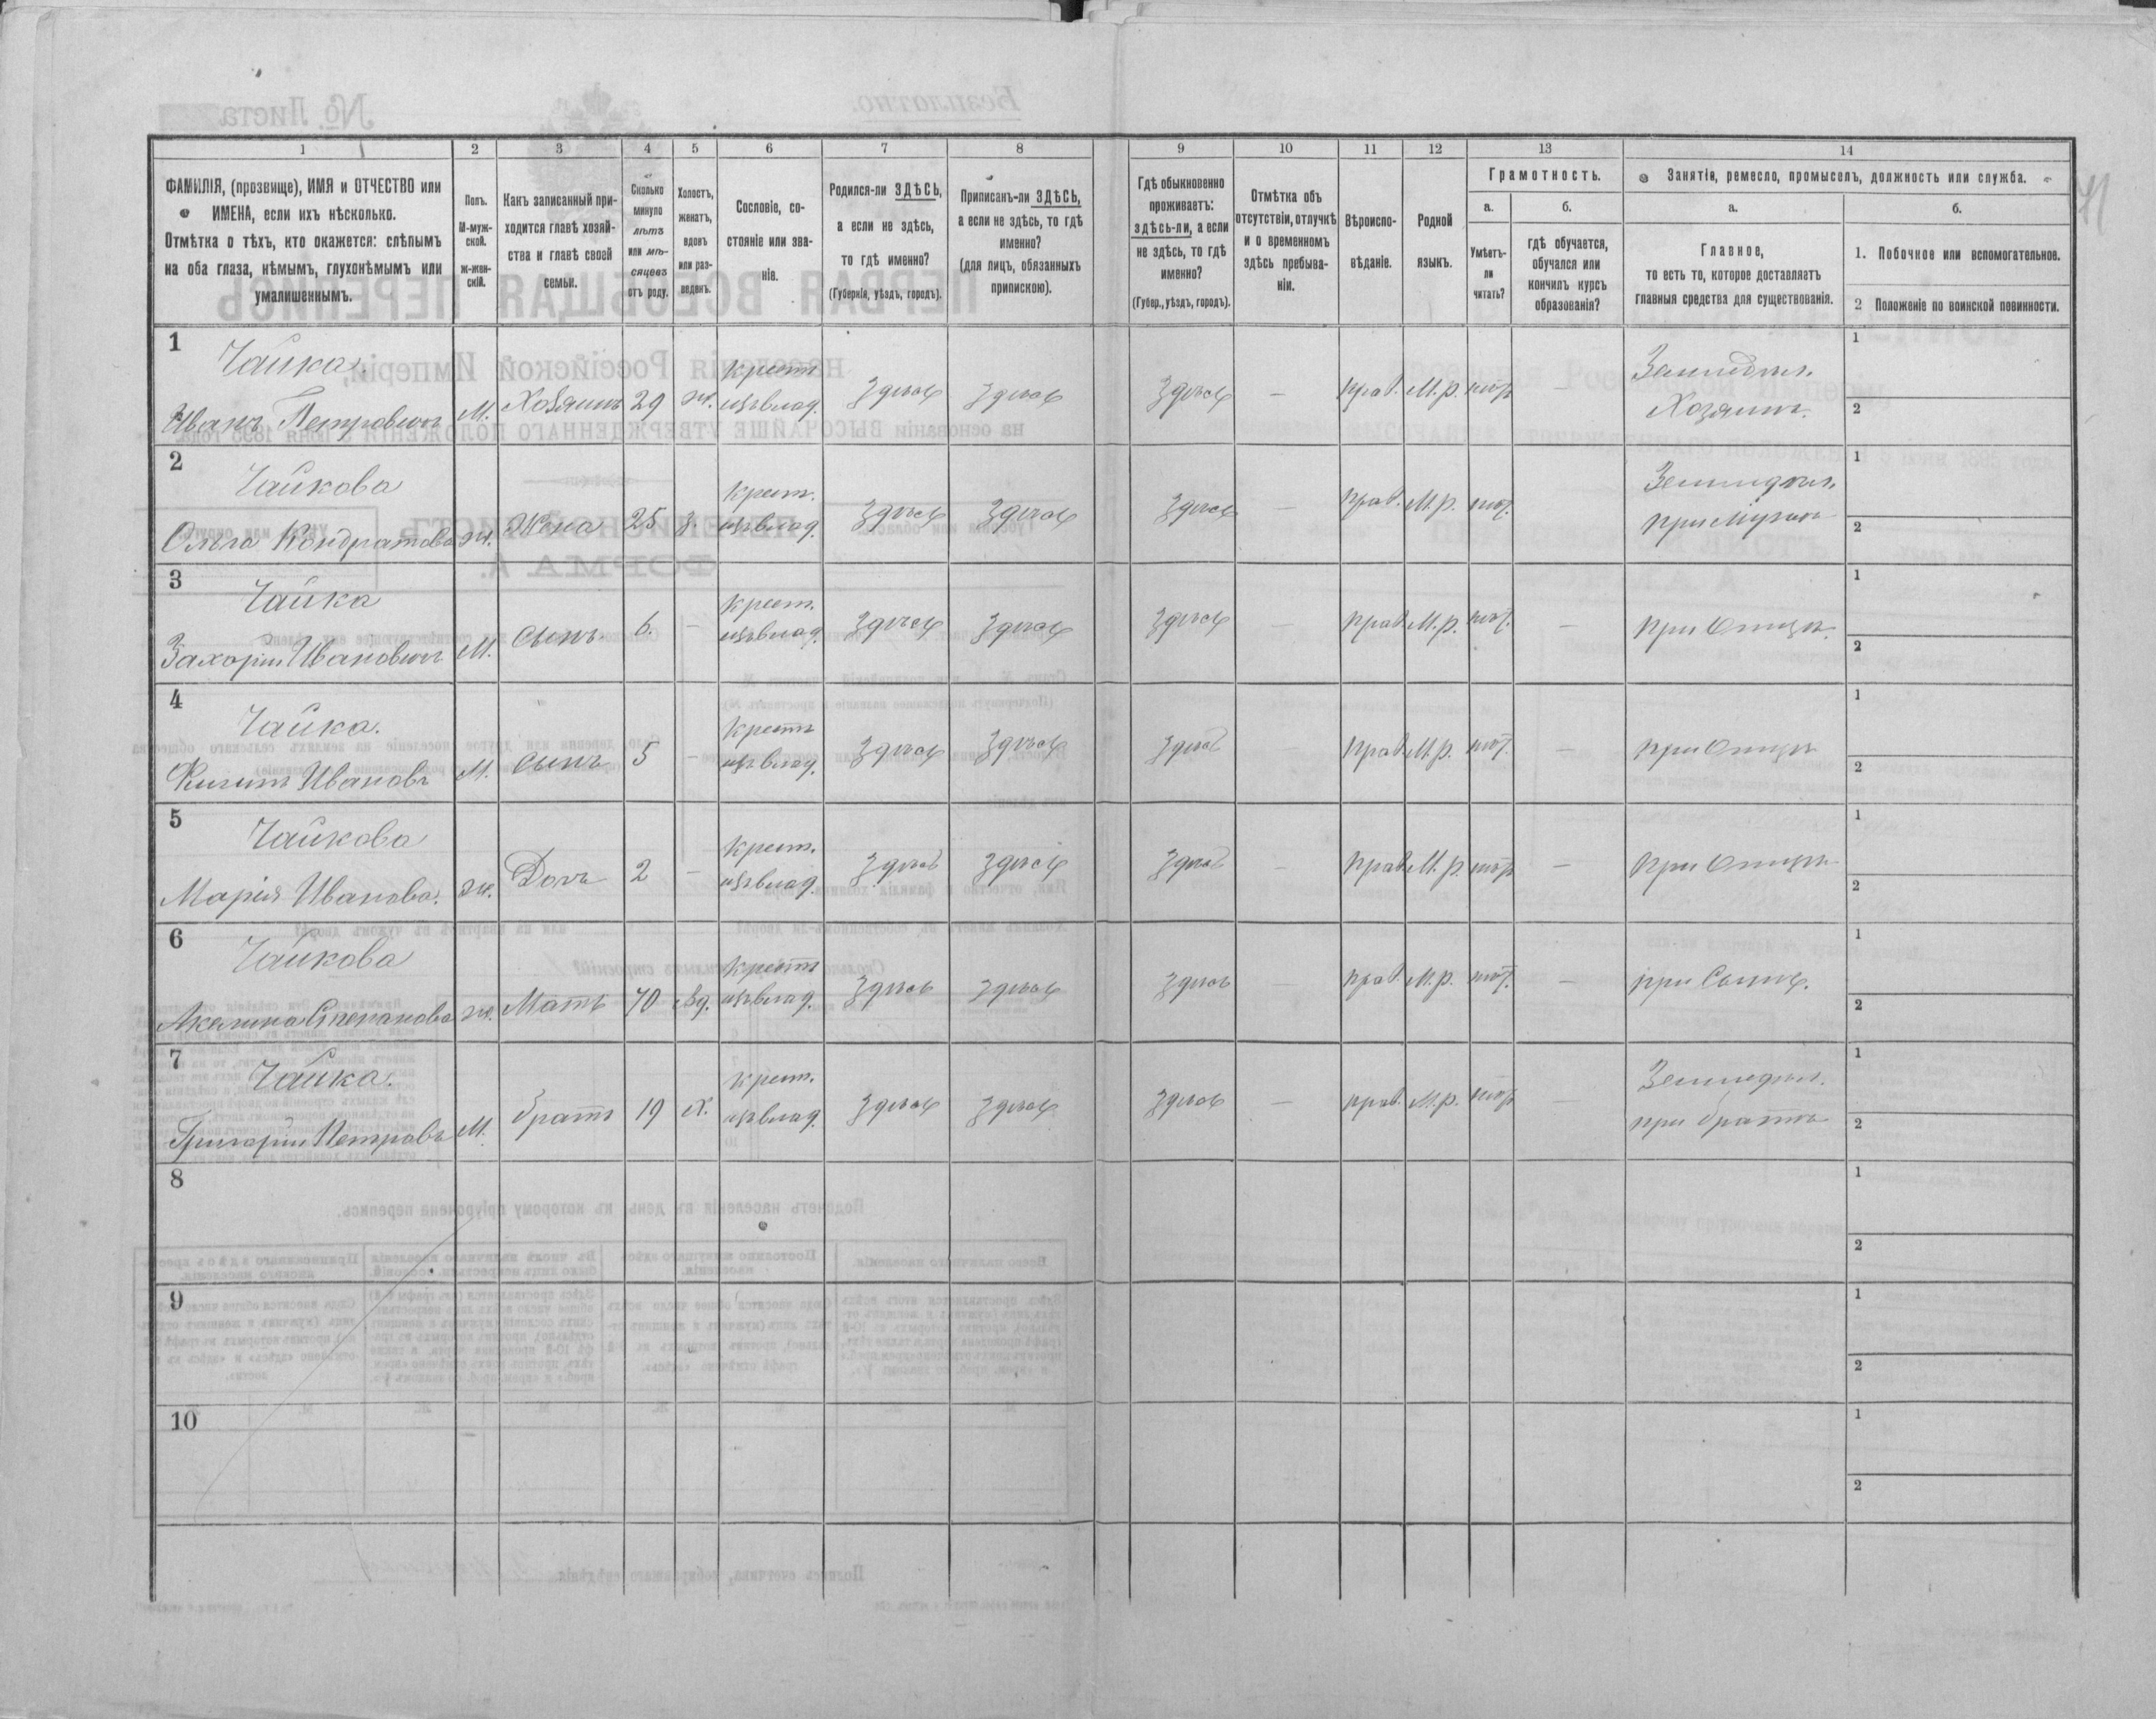 1 2 3 4 5 6 7 8 9 10 11 12 13 14
ФАМИЛІЯ, (прозвище), ИМЯ и ОТЧЕСТВО или
ИМЕНА, если ихъ нѣсколько.
Отмѣтка о тѣхъ, кто окажется: слѣпымъ
на оба глаза, нѣмымъ, глухонѣмымъ или
умалишеннымъ.
Полъ.
М-муж-
ской.
Ж-жен-
скій.
Какъ записанный при-
ходится главѣ хозяй-
ства и главѣ своей
семьи.
Сколько
минуло
лѣтъ
или мѣ-
сяцевъ
отъ роду.
Холостъ,
женатъ,
вдовъ
или раз-
веденъ.
Сословіе, со-
стояніе или зва-
ніе.
Родился-ли ЗДѢСЬ,
а если не здѣсь,
то гдѣ именно?
(Губернія, уѣздъ, городъ).
Приписанъ-ли ЗДѢСЬ,
а если не здѣсь, то гдѣ
именно?
(для лицъ, обязанныхъ
припискою).
Гдѣ обыкновенно
проживаетъ:
здѣсь-ли, а если
не здѣсь, то гдѣ
именно?
(Губер., уѣздъ, городъ).
Отмѣтка объ
отсутствіи, отлучкѣ
и о временномъ
здѣсь пребыва-
ніи.
Вѣроиспо-
вѣданіе.
Родной
языкъ.
Грамотность.
а.
Умѣетъ-
ли
читать?
б.
гдѣ обучается,
обучался или
кончилъ курсъ
образованія?
Занятіе, ремесло, промыселъ, должность или служба.
а.
Главное,
то есть то, которое доставляетъ
главныя средства для существованія.
б.
1. Побочное или вспомогательное.
2 Положеніе по воинской повинности.
1
Чайка.
Иванъ Петровичъ М. Хозяинъ 29 ж. крест. здѣсь здѣсь здѣсь — прав. М.р. —
Хозяинъ.
1
2
2
Чайкова
Ольга Кондратова ж. Жена 25 з. крест. здѣсь здѣсь здѣсь — прав. М.р.
при Мужѣ
1
2
3
Чайка
Захорій Ивановичъ М. Сынъ 6. — крест. здѣсь здѣсь здѣсь — прав. М.р. — при Отцѣ.
1
2
4
Чайка.
Ивановъ М. Сынъ 5 — крест. здѣсь здѣсь здѣсь прав. М.р. — при Отцѣ
1
2
5
Чайкова
Марія Иванова. ж. Дочь 2 — крест. здѣсь здѣсь здѣсь — прав. М.р. — при Отцѣ
1
2
6
Чайкова
Акелина Степанова ж. Мать 70 вд. крест. здѣсь здѣсь здѣсь — прав. М.р. — при Сынѣ.
1
2
7
Чайка.
Григорій Петровъ М. братъ 19 х. крест. здѣсь здѣсь здѣсь — прав. М.р. —
при братѣ
1
2
8
1
2
9
1
2
10
1
2